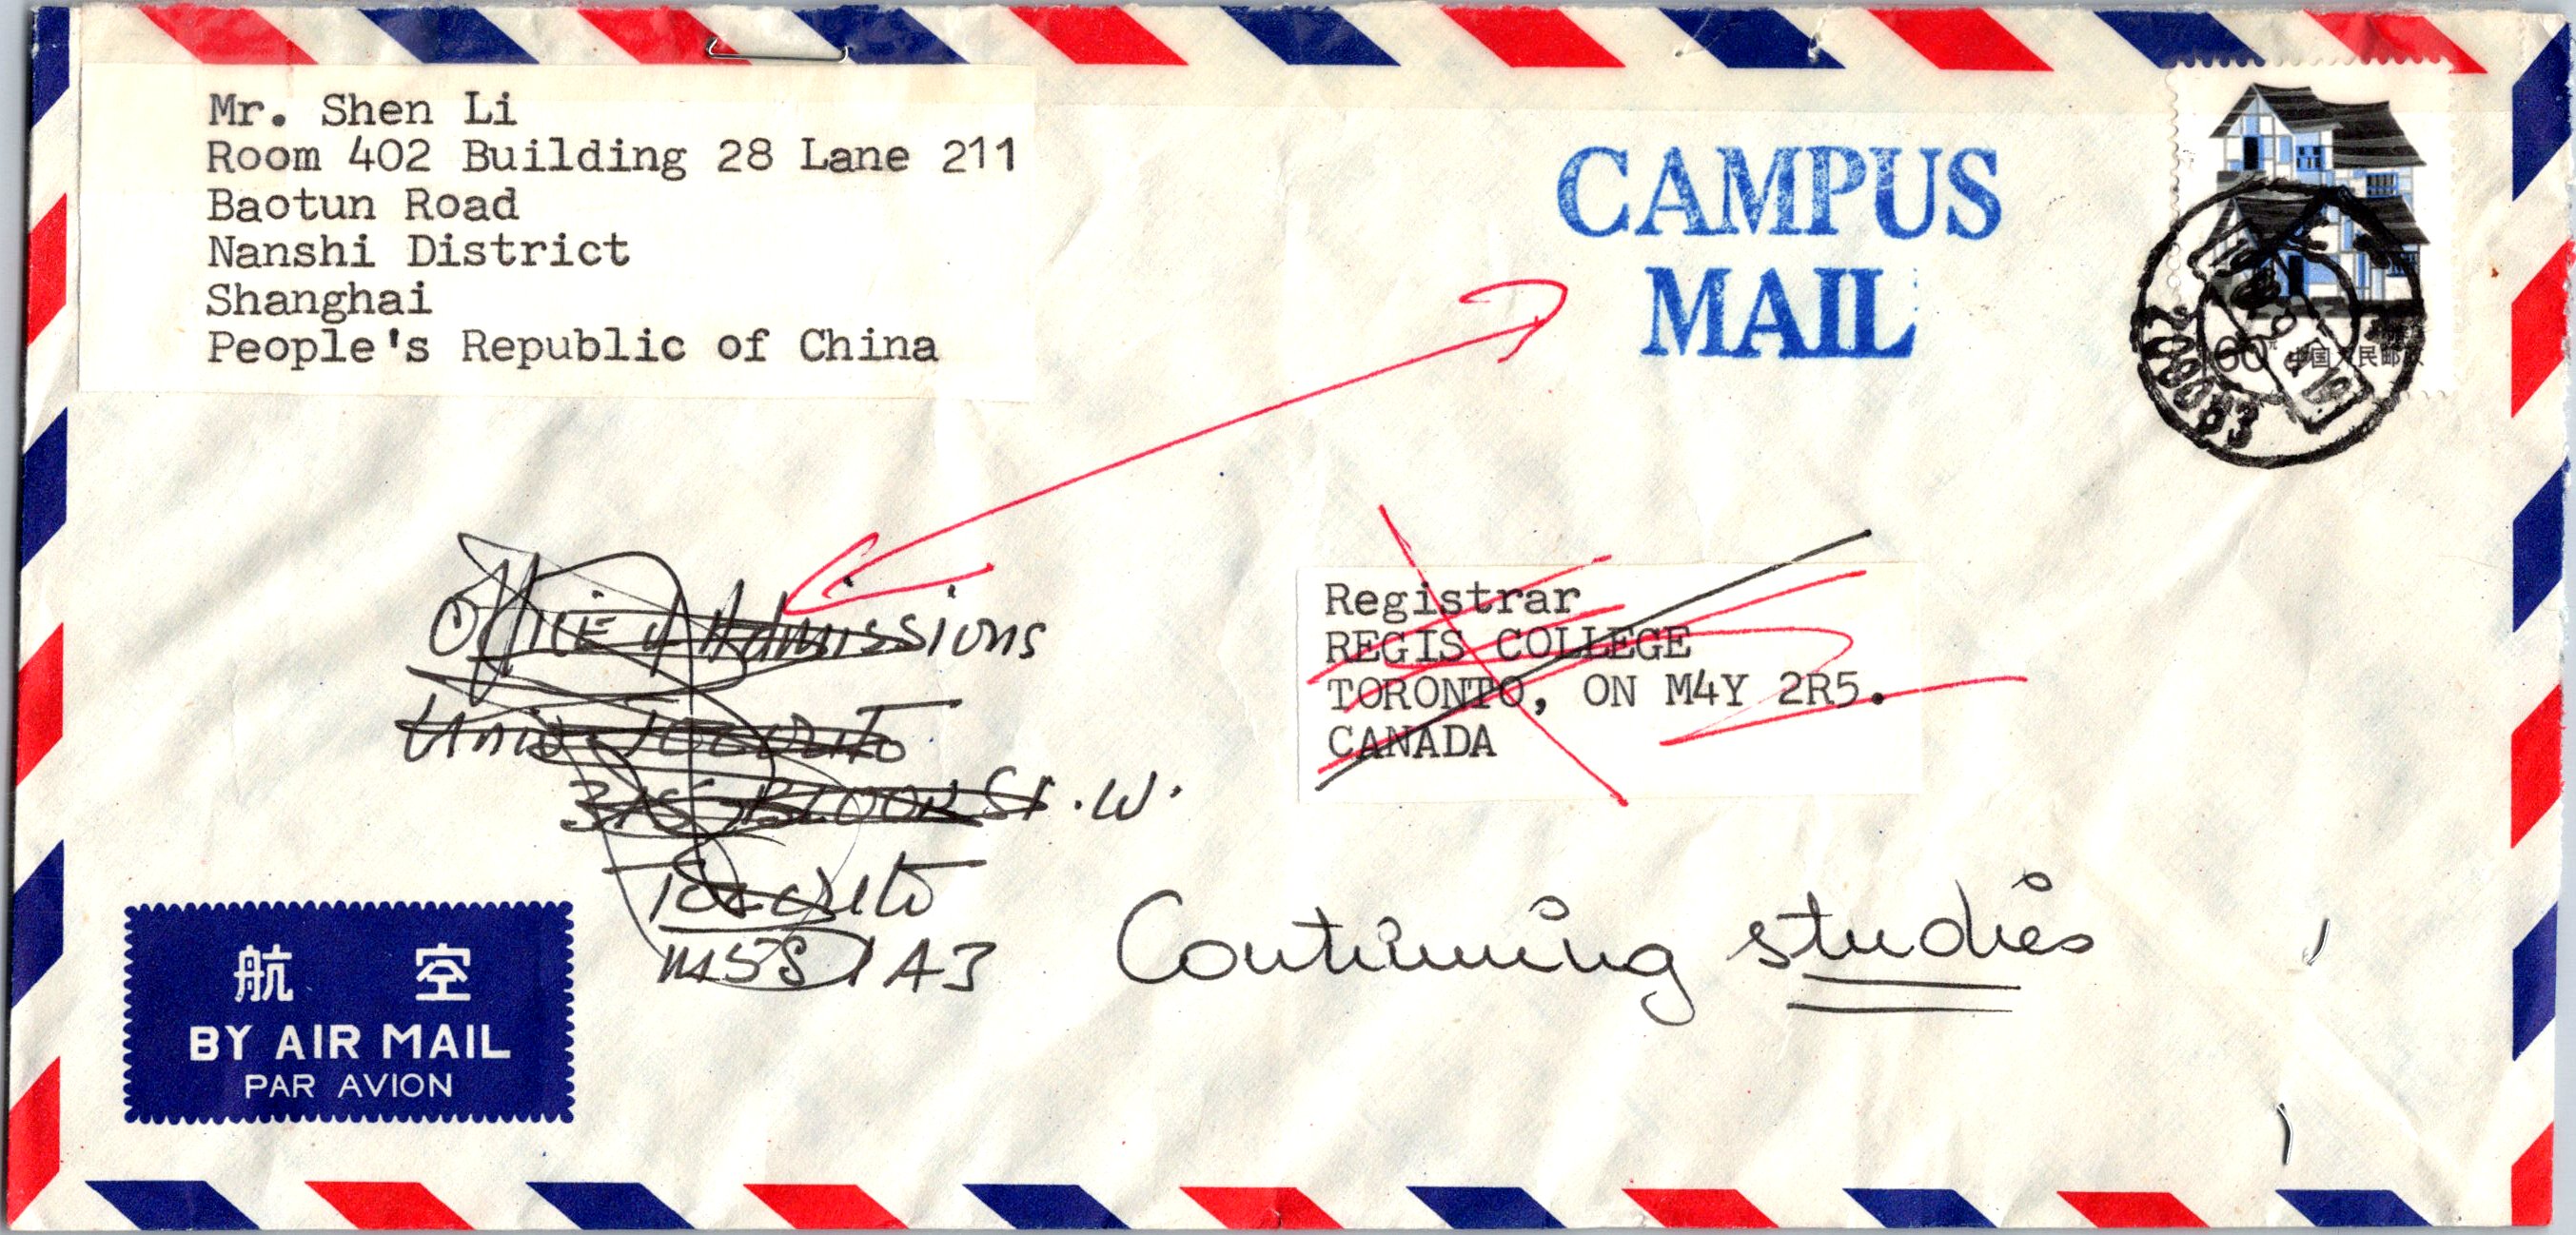 Mr. Shen Li
Room 402 Building 28 Lane 211
Baotun Road
Nanshi District
Shanghai
People's Republic of China
CAMPUS
MAIL
中国人民邮政
Office of Admissions
Univ. Toronto
315 BLOOR St. W.
Toronto
M5S 1A3
Registrar
REGIS COLLEGE
TORONTO, ON M4Y 2R5.
CANADA
Continuing studies
航 空
BY AIR MAIL
PAR AVION